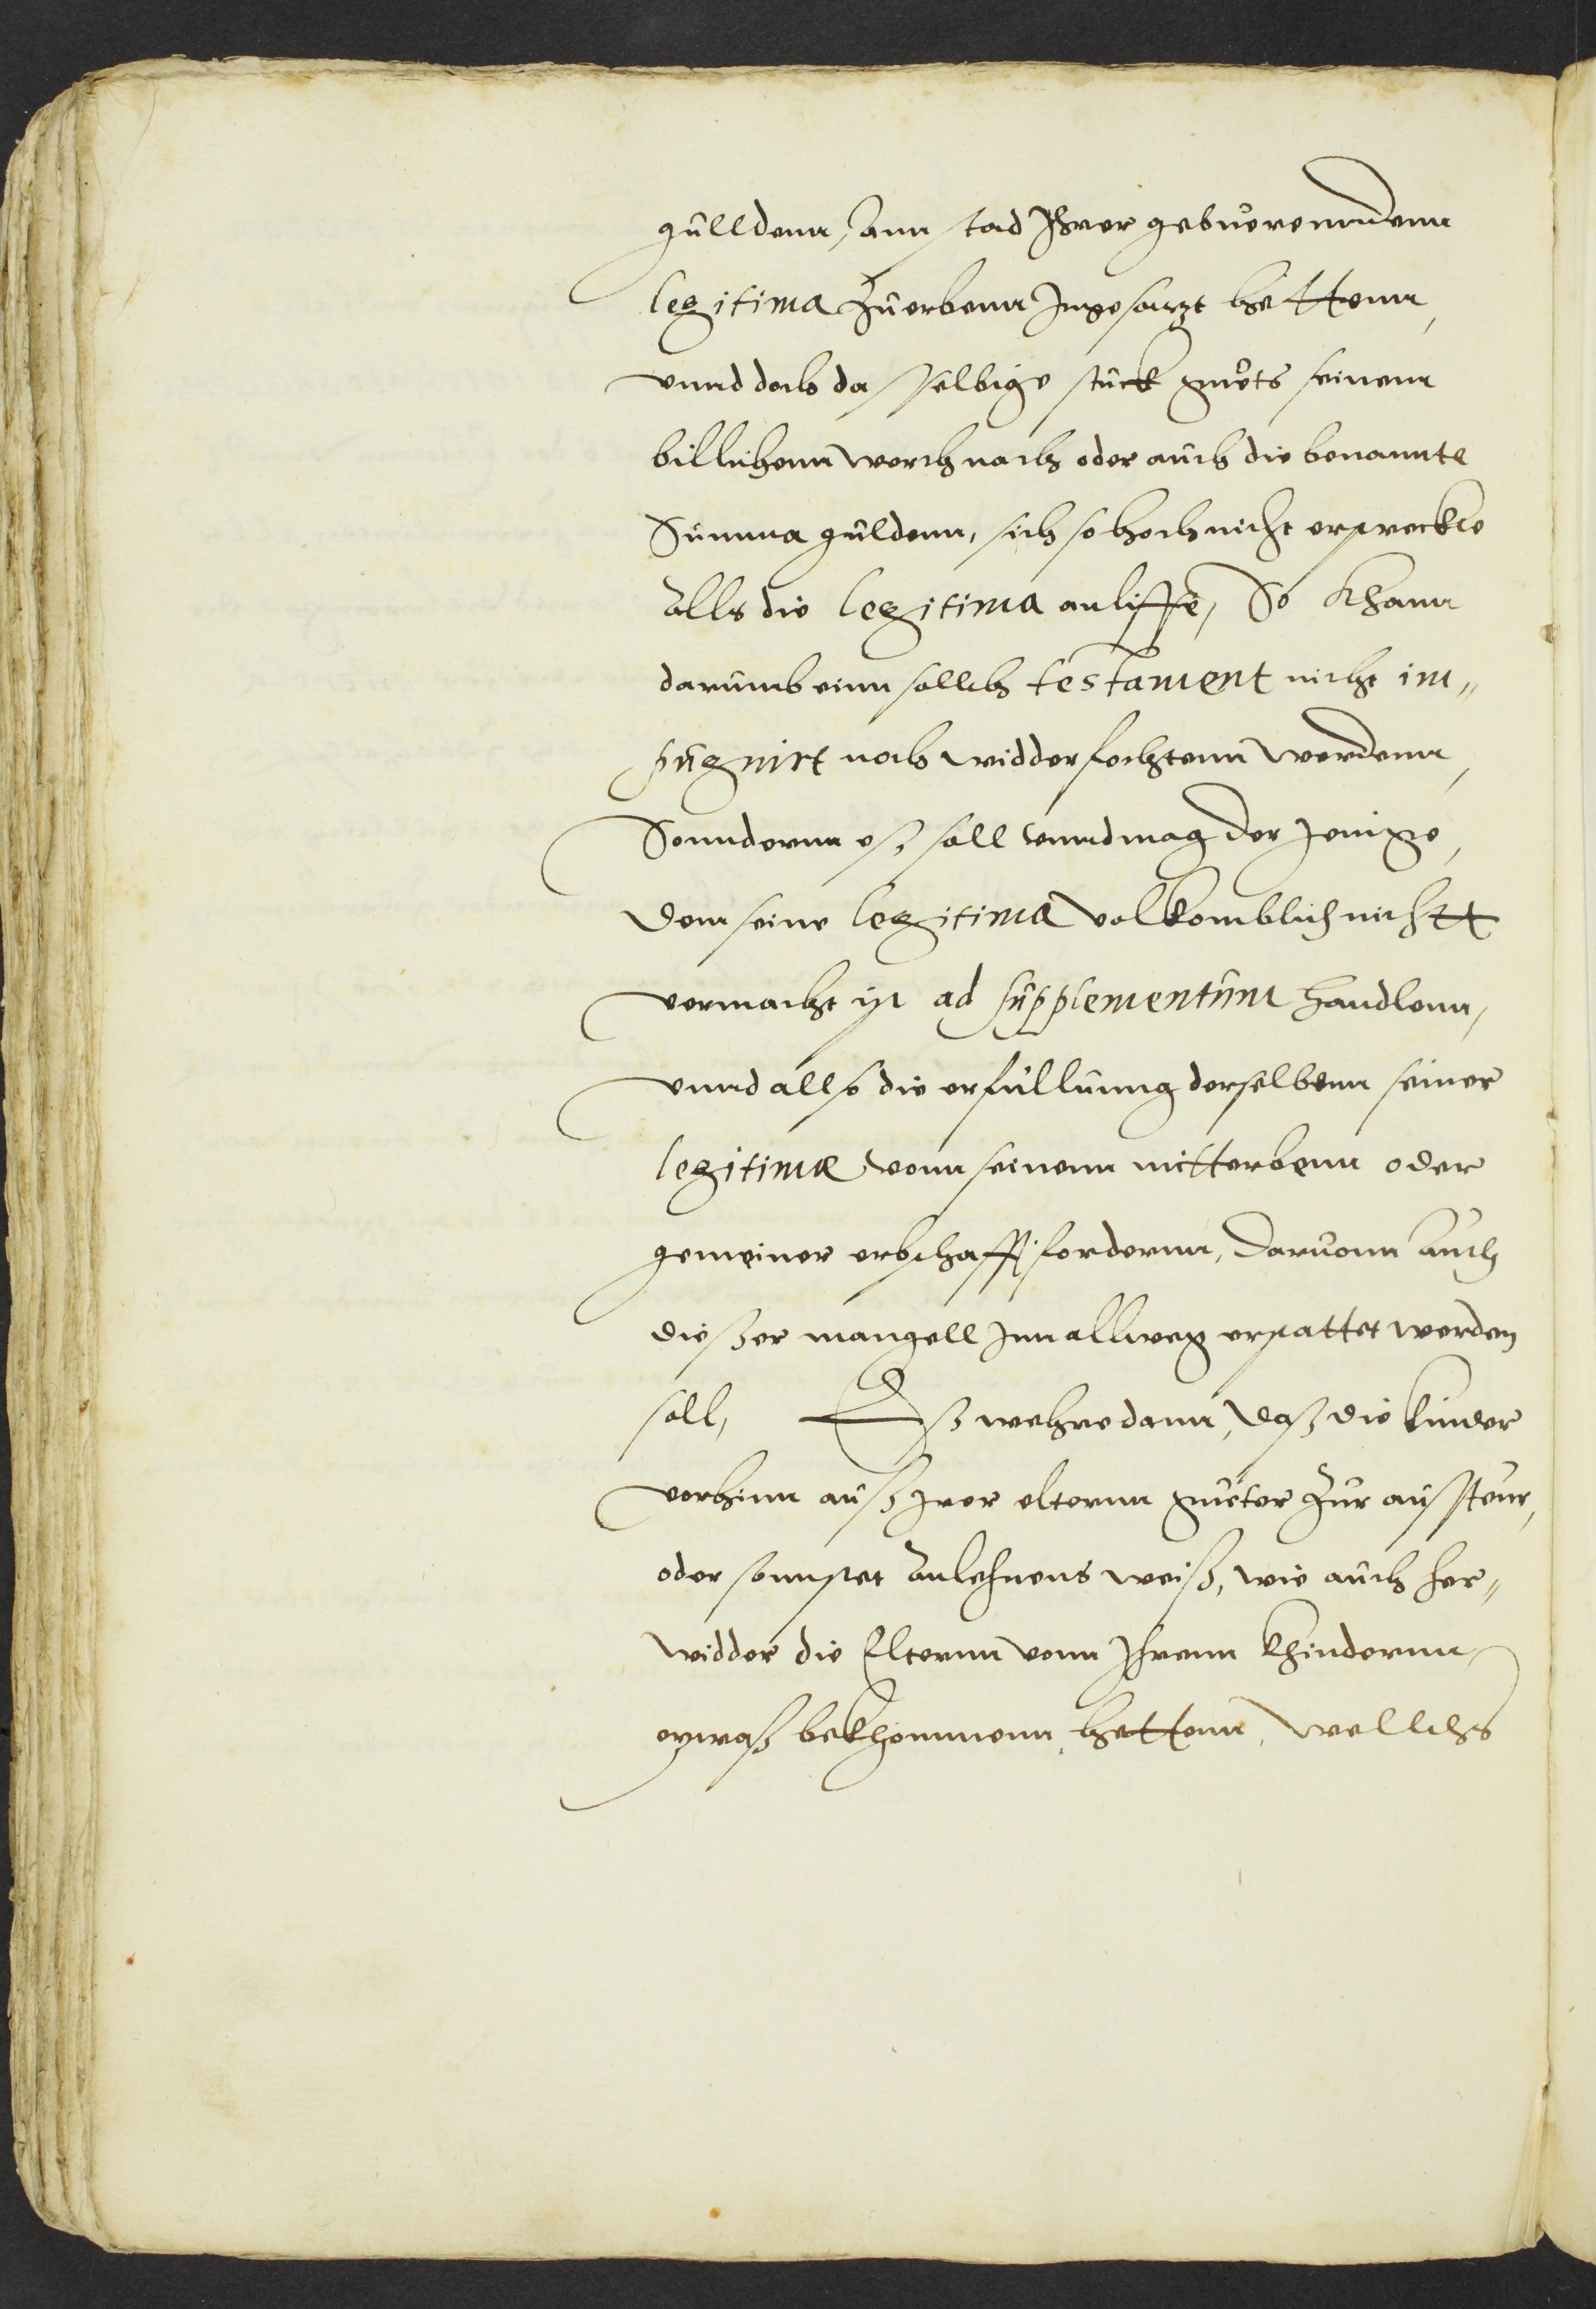 gulldenn, ann stad Ihrer gebuerenndenn
legitima zu erbenn Ingesatzt hettenn,
vnnd doch dasselbige stuck guets seinem
billichenn werth nach oder auch die benannte
Summa guldenn, sich so hoch nicht erstreckte
alls die legitima anlieffe, So khann
darumb einn sollch testament nicht im„
pugnirt noch widderfochtenn werdenn,
Sonndernn eß soll vnnd mag der Jenige,
dem seine legitima volkomblich nichtt
vermacht ist ad supplementum handlenn,
vnnd allso die erfullunng derselbenn seiner
legitimæ vonn seinenn mitterbenn oder
gemeiner erbschafft fordernn, daruonn auch
dießer mangell Inn allweg erstattet werden
soll, Eß wehre dann, daß die kinder
vorhinn auß Irer elternn guetter zur aussteur,
oder sonnstet anlehnens weiß, wie auch her„
widder die Elternn vonn Ihrenn khindernn
etzwaß bekhommenn hettenn, wellchs